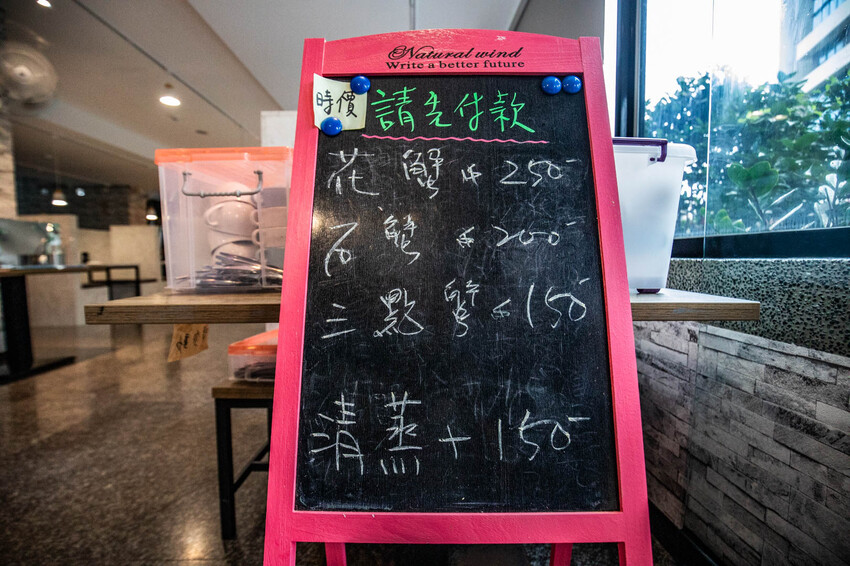 Natural wind
Write a better future
時價
請先付款
花蟹 250-
石蟹 200-
三點蟹 150-
清蒸+150-